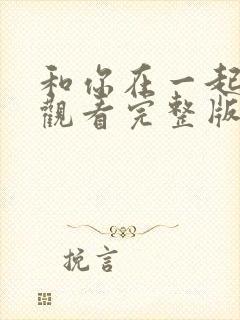 和你在一起
觀看完整版
挽言